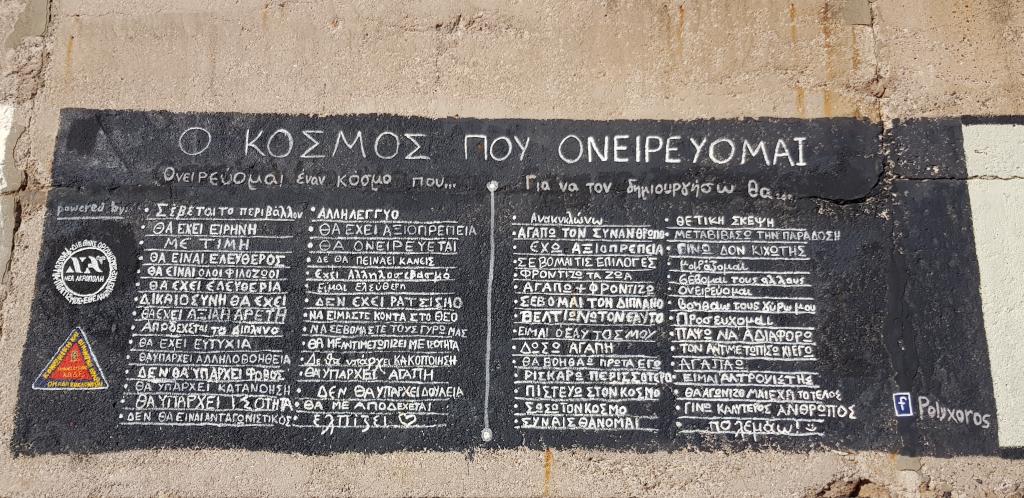 Ο ΚΟΣΜΟΣ ΠΟΥ ΟΝΕΙΡΕΥΟΜΑΙ
Ονειρεύομαι έναν κόσμο που...
powered by:
ΝΕΑ ΑΚΡΟΠΟΛΗ
• Σέβεται το περιβάλλον
• ΘΑ ΕΧΕΙ ΕΙΡΗΝΗ
• ΜΕ ΤΙΜΗ
• ΘΑ ΕΙΝΑΙ ΕΛΕΥΘΕΡΟΣ
• ΘΑ ΕΙΝΑΙ ΟΛΟΙ ΦΙΛΟΣΟΦΟΙ
• ΘΑ ΕΧΕΙ ΕΛΕΥΘΕΡΙΑ
• ΔΙΚΑΙΟΣΥΝΗ ΘΑ ΕΧΕΙ
• ΘΑ ΕΧΕΙ ΑΞΙΑ Η ΑΡΕΤΗ
Αποδέχεται το διπλανο
• ΘΑ ΕΧΕΙ ΕΥΤΥΧΙΑ
• ΘΑ ΥΠΑΡΧΕΙ ΑΛΛΗΛΟΒΟΗΘΕΙΑ
• ΔΕΝ ΘΑ ΥΠΑΡΧΕΙ ΦΟΒΟΣ
• ΘΑ ΥΠΑΡΧΕΙ ΚΑΤΑΝΟΗΣΗ
• ΘΑ ΥΠΑΡΧΕΙ ΙΣΟΤΗΤΑ
• ΔΕΝ ΘΑ ΕΙΝΑΙ ΑΝΤΑΓΩΝΙΣΤΙΚΟΣ
• ΑΛΛΗΛΕΓΓΥΟ
• ΘΑ ΕΧΕΙ ΑΞΙΟΠΡΕΠΕΙΑ
• ΘΑ ΟΝΕΙΡΕΥΕΤΑΙ
• ΔΕ ΘΑ ΠΕΙΝΑΕΙ ΚΑΝΕΙΣ
• Εχει Αλληλοσεβασμό
• Είμαι Ελεύθερη
• ΔΕΝ ΕΧΕΙ ΡΑΤΣΙΣΜΟ
• ΝΑ ΕΙΜΑΣΤΕ ΚΟΝΤΑ ΣΤΟ ΘΕΟ
• ΝΑ ΣΕΒΟΜΑΣΤΕ ΤΟΥΣ ΓΥΡΩ ΜΑΣ
• ΘΑ ΜΕ ΑΝΤΙΜΕΤΩΠΙΖΕΙ ΜΕ ΙΣΟΤΗΤΑ
• Δε θα υπάρχει ΚΑΚΟΠΟΙΗΣΗ
• ΘΑ ΥΠΑΡΧΕΙ ΑΓΑΠΗ
• ΔΕΝ ΘΑ ΥΠΑΡΧΕΙ ΔΟΥΛΕΙΑ
• ΘΑ ΜΕ ΑΠΟΔΕΧΕΤΑΙ
• ελπίζει
Για να τον δημιουργήσω θα...
• Ανακυκλώνω
• ΑΓΑΠΩ ΤΟΝ ΣΥΝΑΝΘΡΩΠΟ
• ΕΧΩ ΑΞΙΟΠΡΕΠΕΙΑ
• ΣΕΒΟΜΑΙ ΤΙΣ ΕΠΙΛΟΓΕΣ
• ΦΡΟΝΤΙΖΩ ΤΑ ΖΩΑ
• ΑΓΑΠΩ + ΦΡΟΝΤΙΖΩ
• ΣΕΒΟΜΑΙ ΤΟΝ ΔΙΠΛΑΝΟ
• ΒΕΛΤΙΩΝΩ ΤΟΝ ΕΑΥΤΟ
• ΕΙΜΑΙ Ο ΕΑΥΤΟΣ ΜΟΥ
• ΔΩΣΩ ΑΓΑΠΗ
• ΘΑ ΒΟΗΘΑΩ ΠΡΩΤΑ ΕΓΩ
• ΡΙΣΚΑΡΩ ΠΕΡΙΣΣΟΤΕΡΟ
• ΠΙΣΤΕΥΩ ΣΤΟΝ ΚΟΣΜΟ
• ΣΩΣΩ ΤΟΝ ΚΟΣΜΟ
• ΣΥΝΑΙΣΘΑΝΟΜΑΙ
• ΘΕΤΙΚΗ ΣΚΕΨΗ
• ΜΕΤΑΒΙΒΑΣΩ ΤΗΝ ΠΑΡΑΔΟΣΗ
• ΓΙΝΩ ΔΟΝ ΚΙΧΩΤΗΣ
• μοιράζομαι
• Σέβομαι τους άλλους
• Ονειρεύομαι
• βοηθάω τους γύρω μου
• Προσεύχομαι
• ΠΑΥΩ ΝΑ ΑΔΙΑΦΟΡΩ
• ΤΟΝ ΑΝΤΙΜΕΤΩΠΙΖΩ ΚΙ ΕΓΩ
• ΑΓΑΠΑΩ
• ΕΙΜΑΙ ΑΛΤΡΟΥΙΣΤΗΣ
• ΘΑ ΑΓΩΝΙΖΟΜΑΙ ΜΕΧΡΙ ΤΟ ΤΕΛΟΣ
• ΓΙΝΩ ΚΑΛΥΤΕΡΟΣ ΑΝΘΡΩΠΟΣ
• πολεμάω!
f Polyxoros